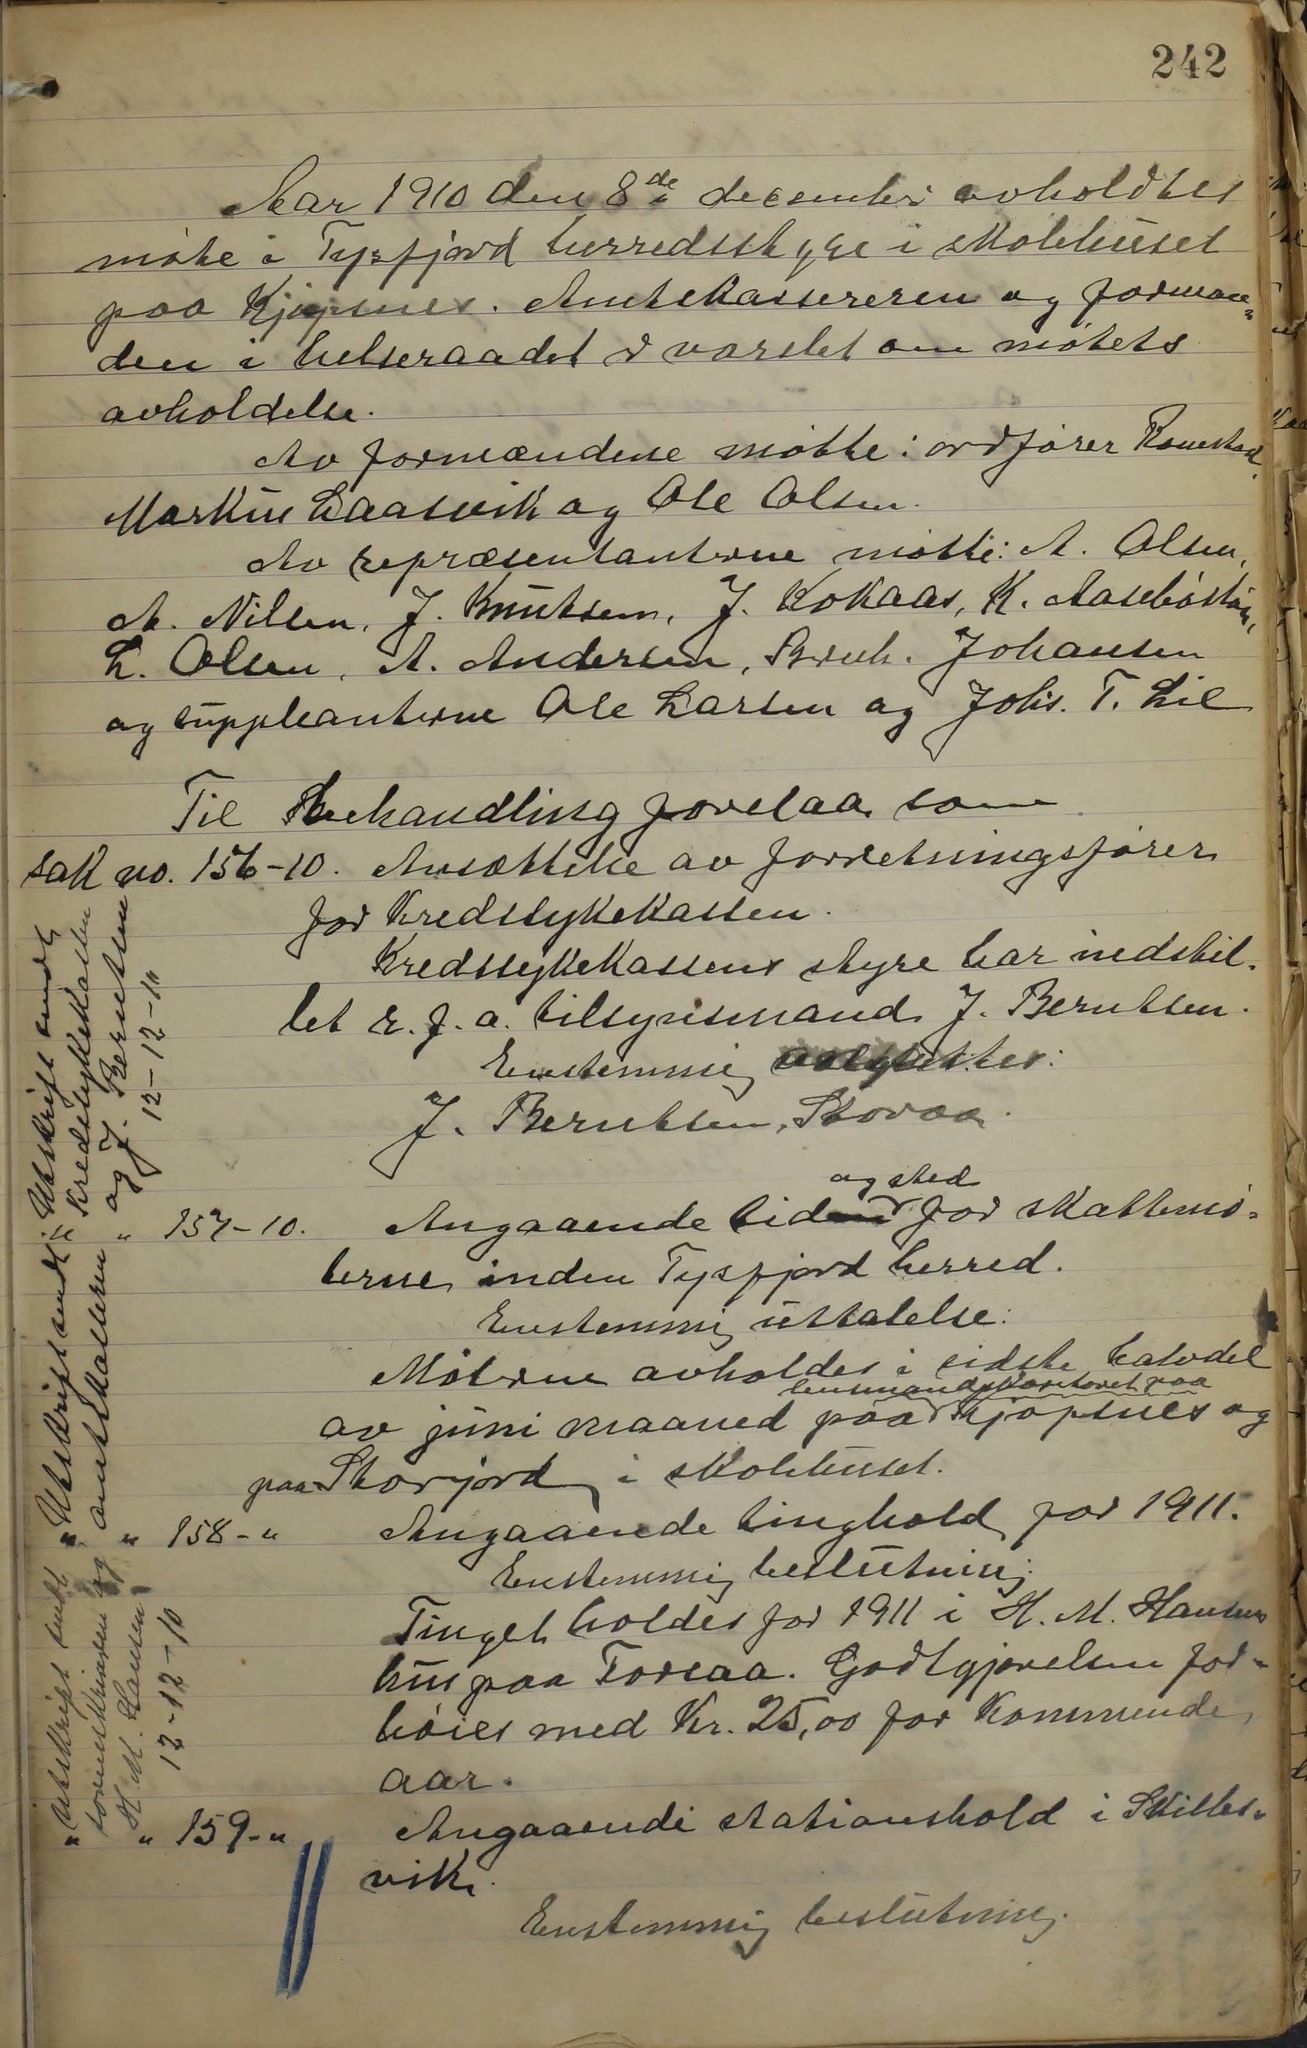 242
Aar 1910 den 8de december avholdtes
møte i Tysfjord herredsstyre i skolehuset
paa Kjøpsnes. Amtskassereren og forman-
den i helseraadet er varslet om møtets
avholdelse.
Av formændene møtte: ordfører Ramstad,
Markus Laasvik og Ole Olsen.
Av repræsentanterne møtte: A. Olsen,
A. Nilsen, J. Knutsen, J. Kokaas, K. Aasebøstøn,
L. Olsen, A. Andersen, Johansen
og suppleanterne Ole Larsen og Johs. T. Lil
Til Behandling forelaa som
sak no. 156-10. Ansættelse av forretningsfører
for Kredssykekassen.
Kredssykekassens styre har indstil-
let e. f. a. tilsynsmand J. Berntsen.
Enstemmig
J. Berntsen, Storaa.
og sted
" 157-10. Angaaende tiden for skattemø-
terne inden Tysfjord herred.
Enstemmig uttalelse:
Møterne avholdes i sidste halvdel
lensmandskontoret paa
av juni maaned paa Kjøpsnes og
paa Storjord i skolehuset.
" 158-" Angaaende tinghold for 1911.
Enstemmig beslutning:
Tinget holdes for 1911 i H. M. Hansens
hus paa Forsaa. Godtgjørelsen for-
høies med Kr. 25,00 for kommende
aar.
" 159-" Angaaende stationshold i Skilles-
vik.
Enstemmig beslutning.
" Utskrift sendt
Kredssykekassen
og J. Berntsen
12-12-10
" Utskrift sendt
amtskassereren
" Utskrift sendt
sorenskriveren og
H. M. Hansen
12-12-10